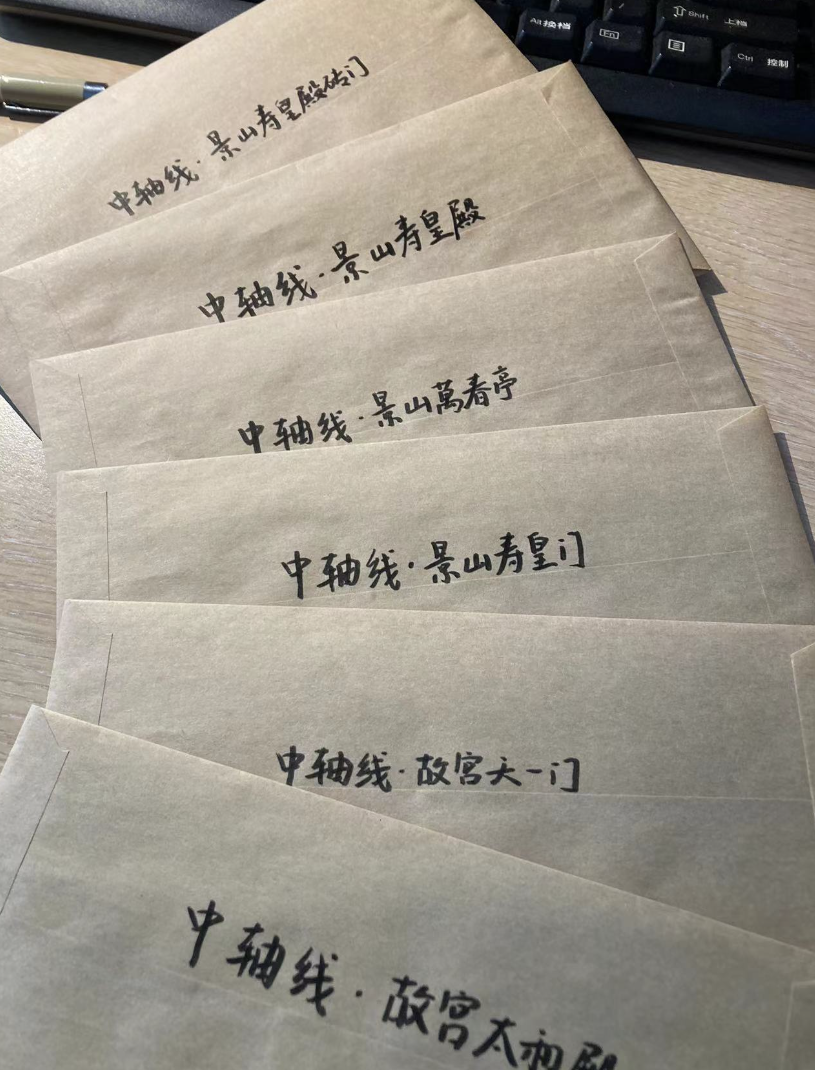 Alt换挡
Fn
Shift 上档
Ctrl 控制
中轴线·景山寿皇殿砖门
中轴线·景山寿皇殿
中轴线·景山萬春亭
中轴线·景山寿皇门
中轴线·故宫天一门
中轴线·故宫太和殿